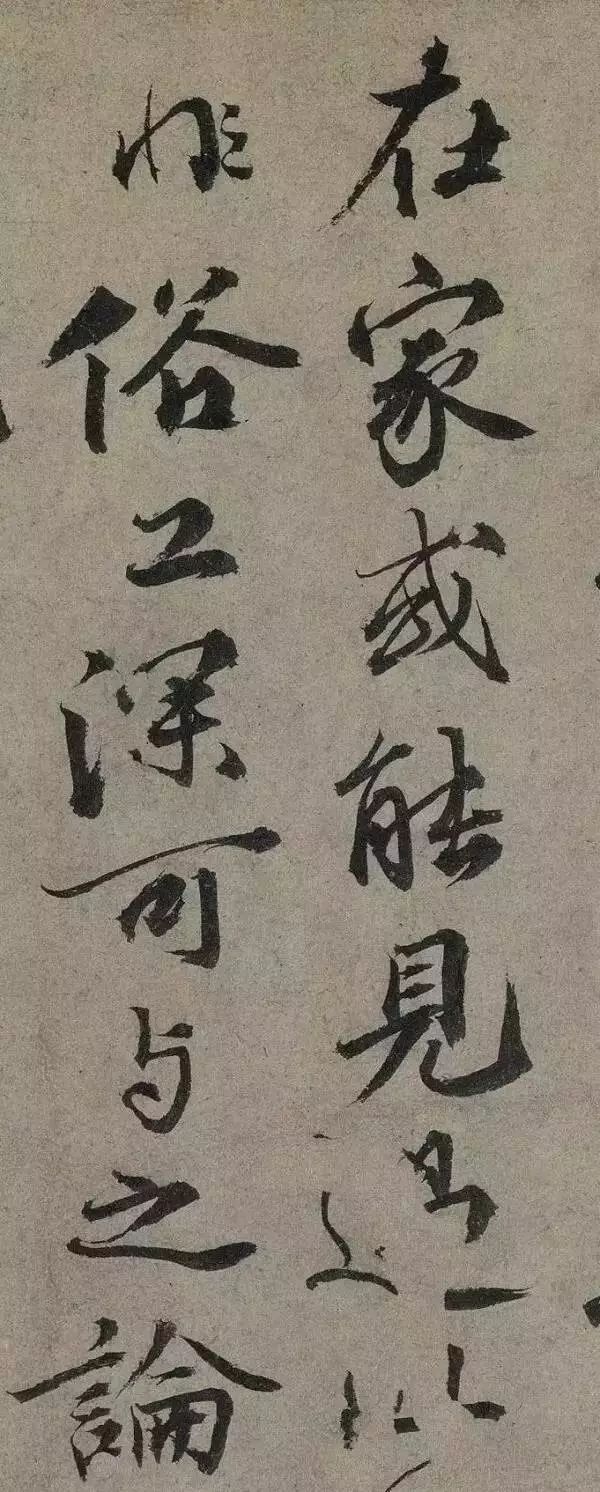 在家或能見
非俗工深可与之論